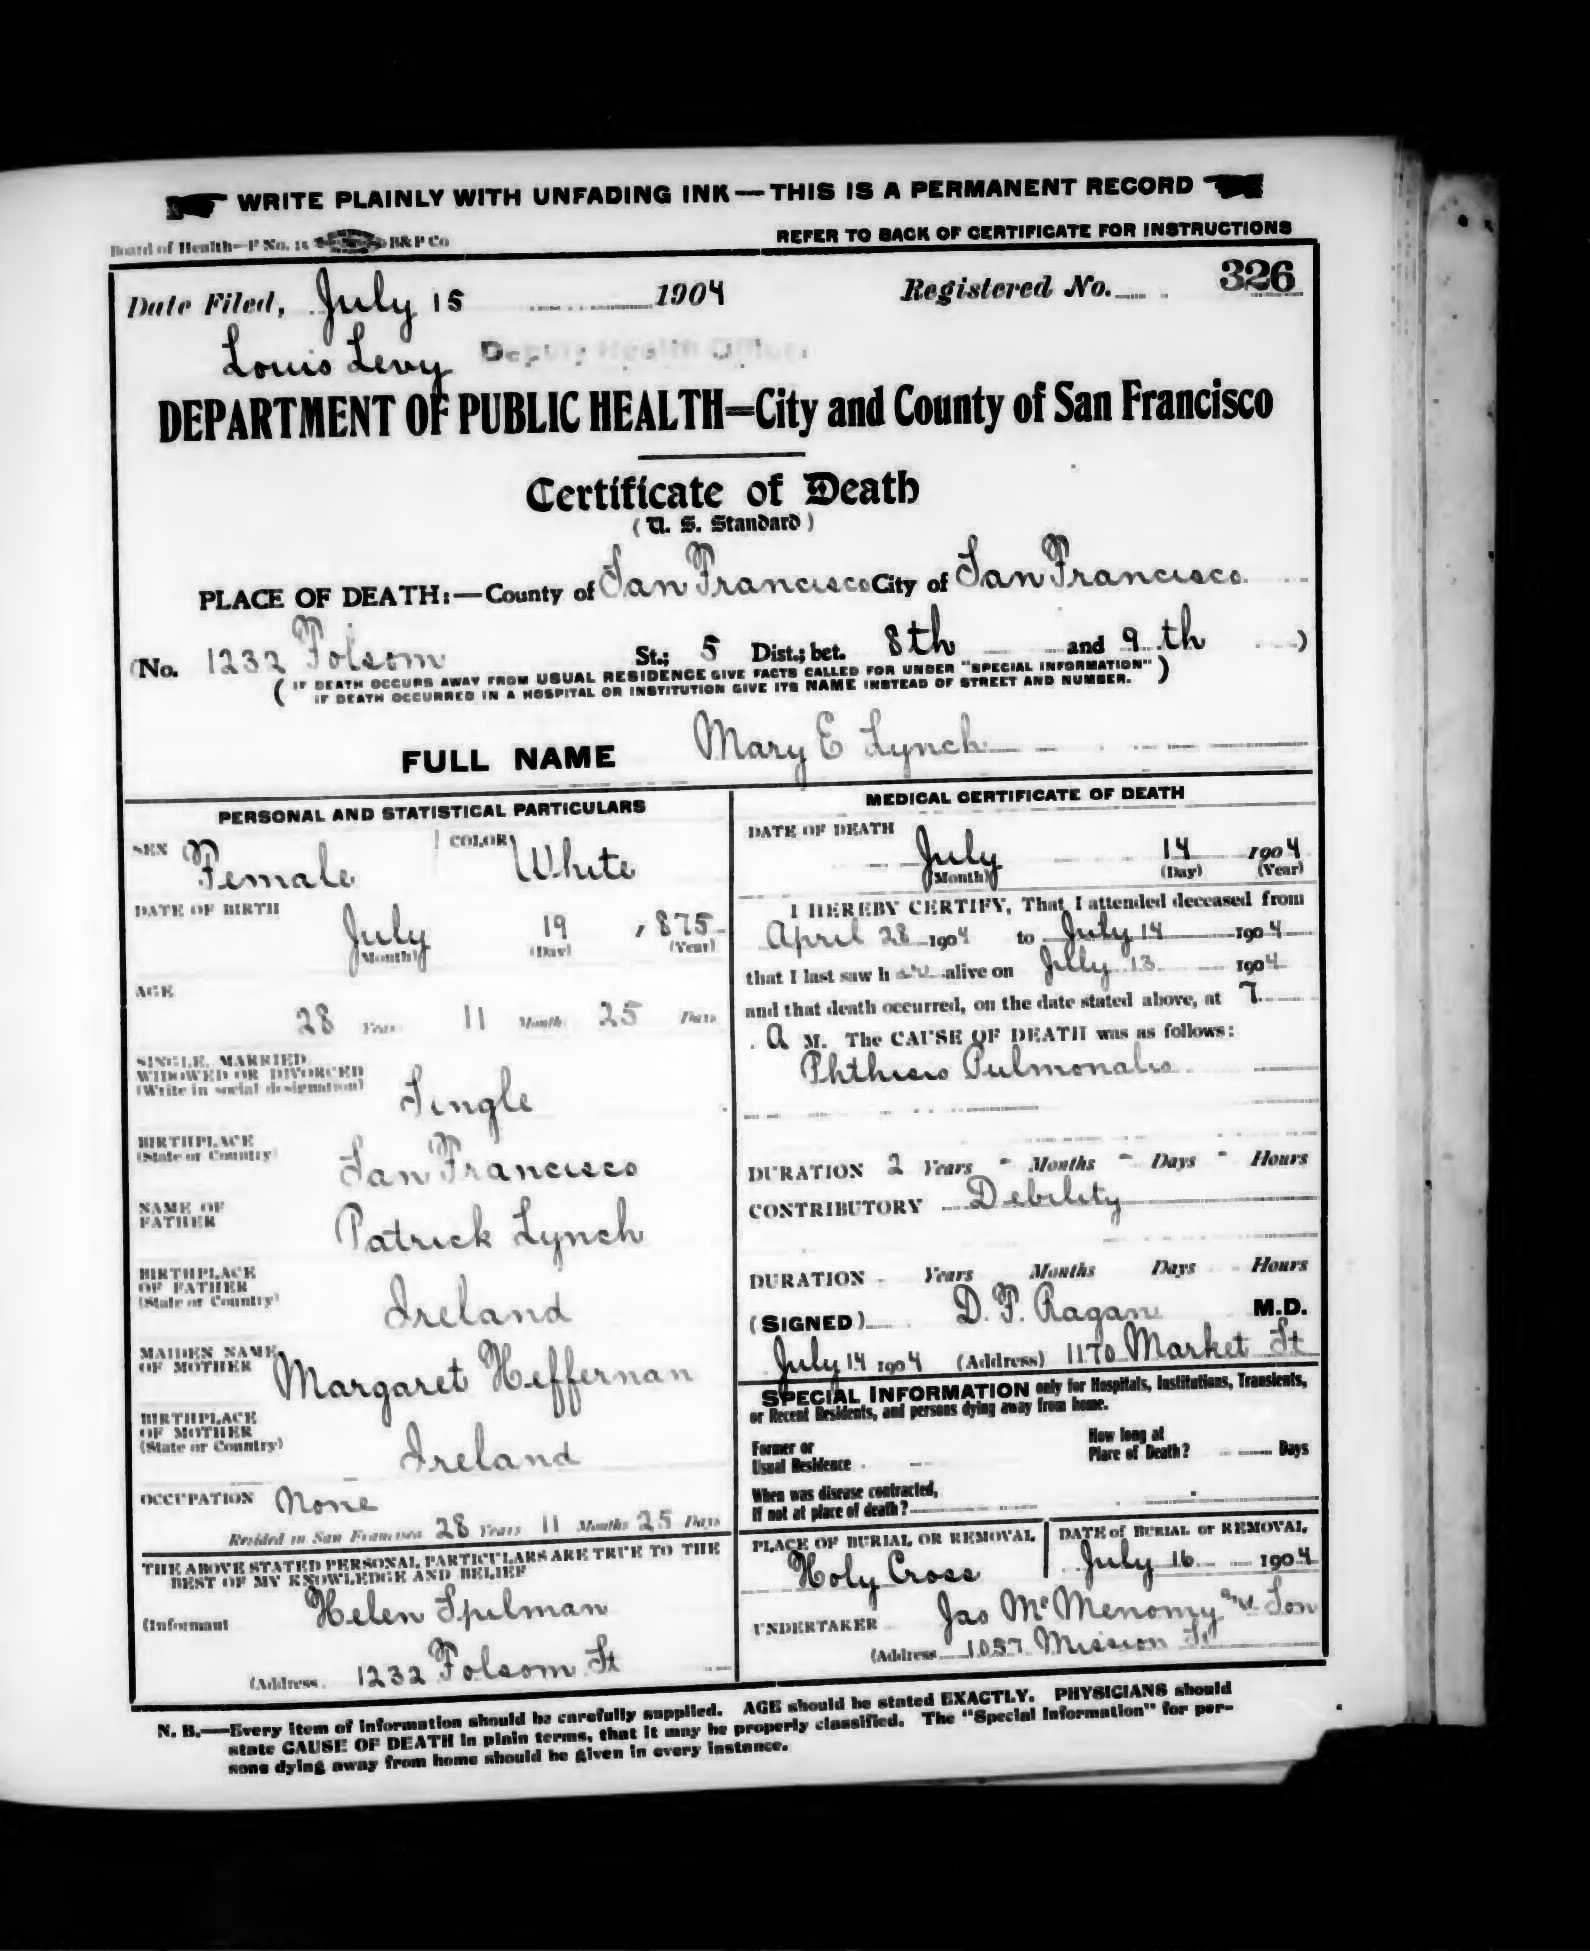 WRITE PLAINLY WITH UNFADING INK — THIS IS A PERMANENT RECORD
Board of Health—P No. B&P Co
REFER TO BACK OF CERTIFICATE FOR INSTRUCTIONS
Date Filed, July 15 1904 Registered No. 326
Louis Levy Deputy Health Officer
DEPARTMENT OF PUBLIC HEALTH=City and County of San Francisco
Certificate of Death
(U. S. Standard)
PLACE OF DEATH:—County of San Francisco City of San Francisco
(No. 1232 Folsom St.; 5 Dist.; bet. 8th and 9th )
( IF DEATH OCCURS AWAY FROM USUAL RESIDENCE GIVE FACTS CALLED FOR UNDER "SPECIAL INFORMATION" )
IF DEATH OCCURRED IN A HOSPITAL OR INSTITUTION GIVE ITS NAME INSTEAD OF STREET AND NUMBER.
FULL NAME Mary E Lynch
PERSONAL AND STATISTICAL PARTICULARS
SEX Female COLOR White
DATE OF BIRTH
July 19 1875
(Month) (Day) (Year)
AGE
28 Years 11 Months 25 Days
SINGLE, MARRIED,
WIDOWED OR DIVORCED
(Write in social designation)
Single
BIRTHPLACE
(State or Country)
San Francisco
NAME OF
FATHER
Patrick Lynch
BIRTHPLACE
OF FATHER
(State or Country)
Ireland
MAIDEN NAME
OF MOTHER
Margaret Heffernan
BIRTHPLACE
OF MOTHER
(State or Country)
Ireland
OCCUPATION None
Resided in San Francisco 28 Years 11 Months 25 Days
THE ABOVE STATED PERSONAL PARTICULARS ARE TRUE TO THE
BEST OF MY KNOWLEDGE AND BELIEF
(Informant Helen Spilman
(Address 1232 Folsom St
MEDICAL CERTIFICATE OF DEATH
DATE OF DEATH
July 14 1904
(Month) (Day) (Year)
I HEREBY CERTIFY, That I attended deceased from
April 28 1904 to July 14 1904
that I last saw her alive on July 13 1904
and that death occurred, on the date stated above, at 7
A M. The CAUSE OF DEATH was as follows:
Phthisis Pulmonalis
DURATION 2 Years - Months - Days - Hours
CONTRIBUTORY Debility
DURATION Years Months Days Hours
(SIGNED) D. F. Ragan M.D.
July 14 1904 (Address) 1170 Market St
SPECIAL INFORMATION only for Hospitals, Institutions, Transients,
or Recent Residents, and persons dying away from home.
Former or
Usual Residence
How long at
Place of Death? Days
When was disease contracted,
If not at place of death?
PLACE OF BURIAL OR REMOVAL
Holy Cross
DATE of BURIAL or REMOVAL
July 16 1904
UNDERTAKER Jas McMenomy and Son
(Address 1057 Mission St
N. B.—Every item of information should be carefully supplied. AGE should be stated EXACTLY. PHYSICIANS should
state CAUSE OF DEATH in plain terms, that it may be properly classified. The "Special Information" for per-
sons dying away from home should be given in every instance.